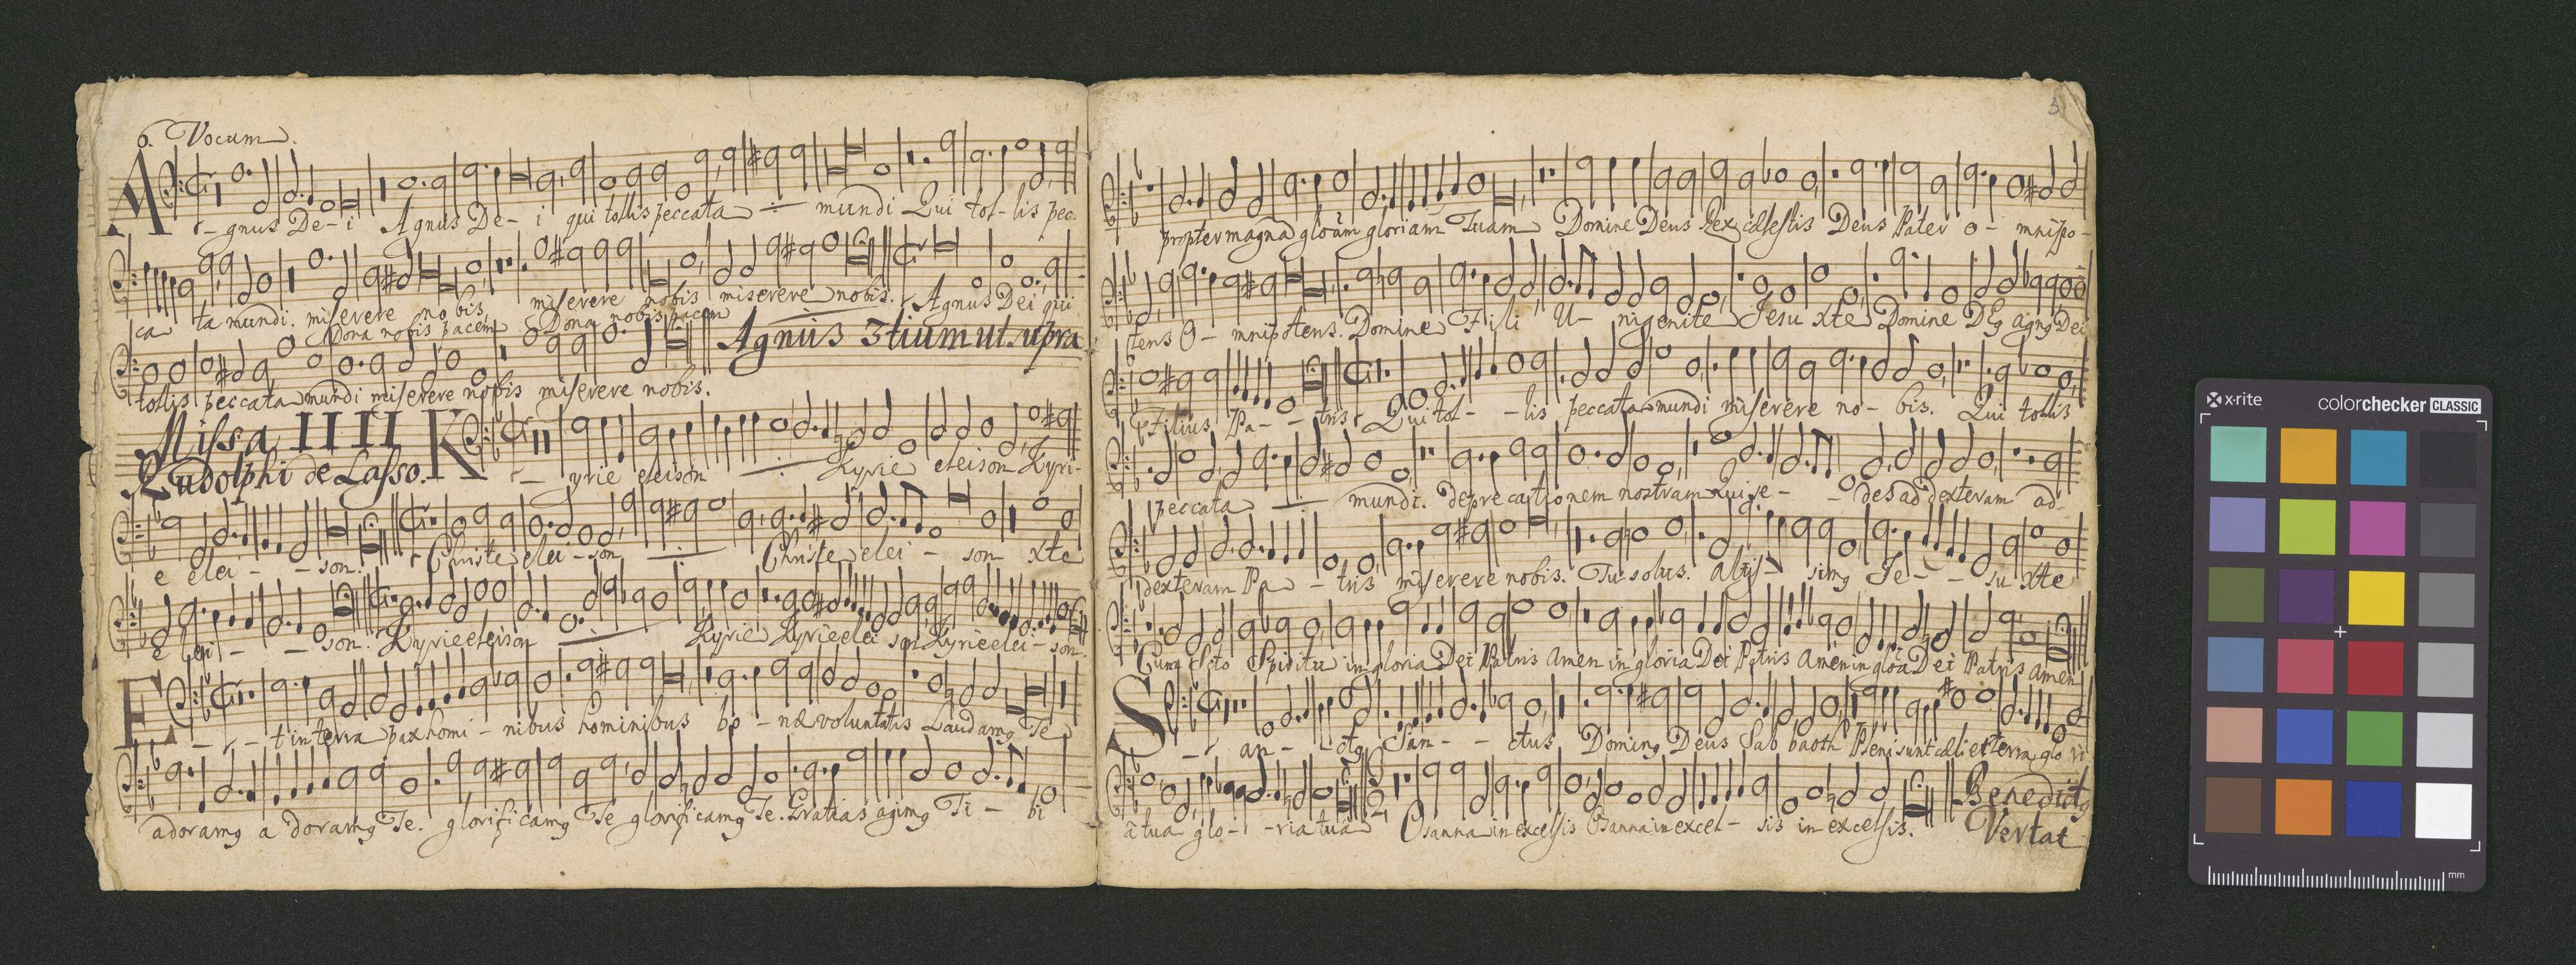 6. Vocum.
A - gnus De - i Agnus De - i qui tollis peccata ÷ mundi Qui tol - lis pec-
ca ta mundi. miserere nobis, miserere nobis miserere nobis. Agnus Dei qui
Dona nobis pacem Dona nobis pacem
Agnus 3tium ut supra
tollis peccata mundi miserere nobis miserere nobis.
Missa IIII
Rudolphi de Lasso.
K - yrie eleison ÷ Kyrie eleison Kyri-
e elei - - son. Christe elei - son ÷ Christe elei - son xte
e lei - - son. Kyrie eleison ÷ Kyrie Kyrie elei son Kyrie elei - son.
E - - t in terra pax homi - nibus hominibus bo - næ voluntatis Laudamg Te
adoramg a doramg Te. glorificamg Te glorificamg Te. Gratias agimg Ti - bi
5
propter magnā gloām gloriam Tuam Domine Deus Rex cœlestis Deus Pater o - mnipo-
tens O - mnipotens. Domine Fili U - nigenite Jesu xte Domine Dēg agng Dei
Filius Pa - - tris Qui tol - - lis peccata mundi miserere no - bis. Qui tollis
peccata ÷ mundi. deprecationem nostram Qui se - - des ad dexteram ad-
dexteram Pa - tris miserere nobis. Tu solus. Altis - simg Je - - su xte
Cum Scto Spiritu in gloria Dei Patris Amen in gloria Dei Patris Amen in glōa Dei Patris Amen
S - an - - ctg San - - ctus Doming Deus Sab baoth Pleni sunt cœli et terra glo ri
â tua glo - - ria tua Osanna in excelsis Osanna in excel - sis in excelsis.
Benedictg
Vertat
x-rite
colorchecker CLASSIC
mm